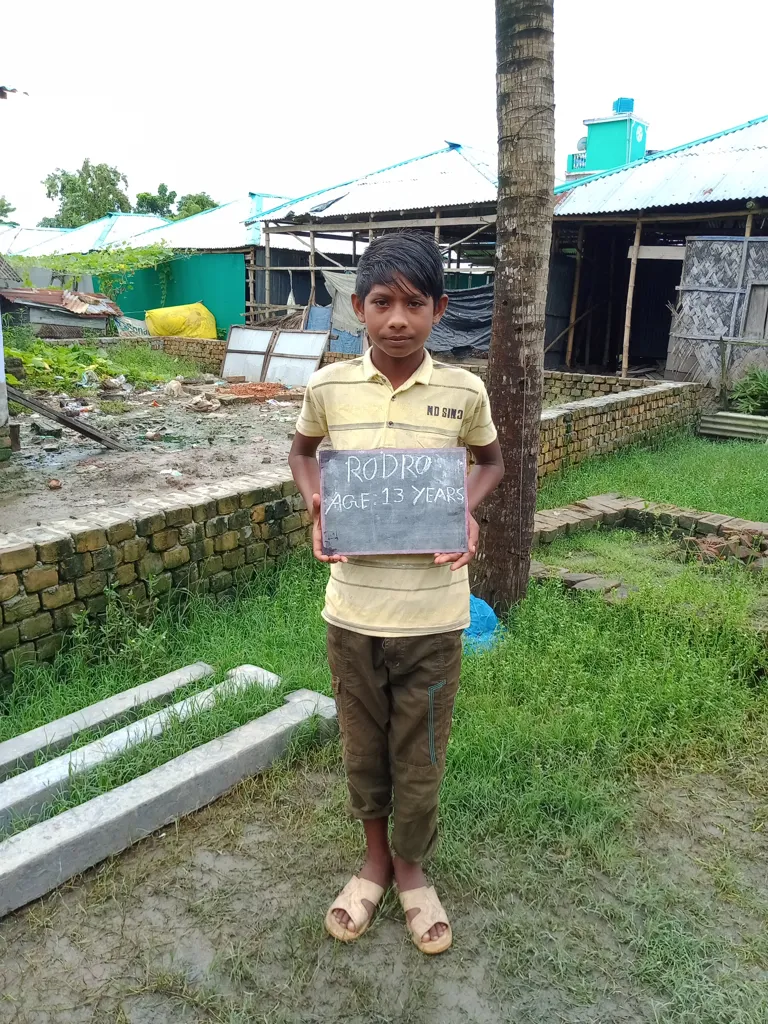 ND SINC
RODRO
AGE: 13 YEARS